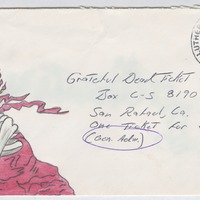 Grateful Dead Ticket
Box C-S 8190
San Rafael, Ca.
One Ticket for
(Gen. Adm.)
LUTHER